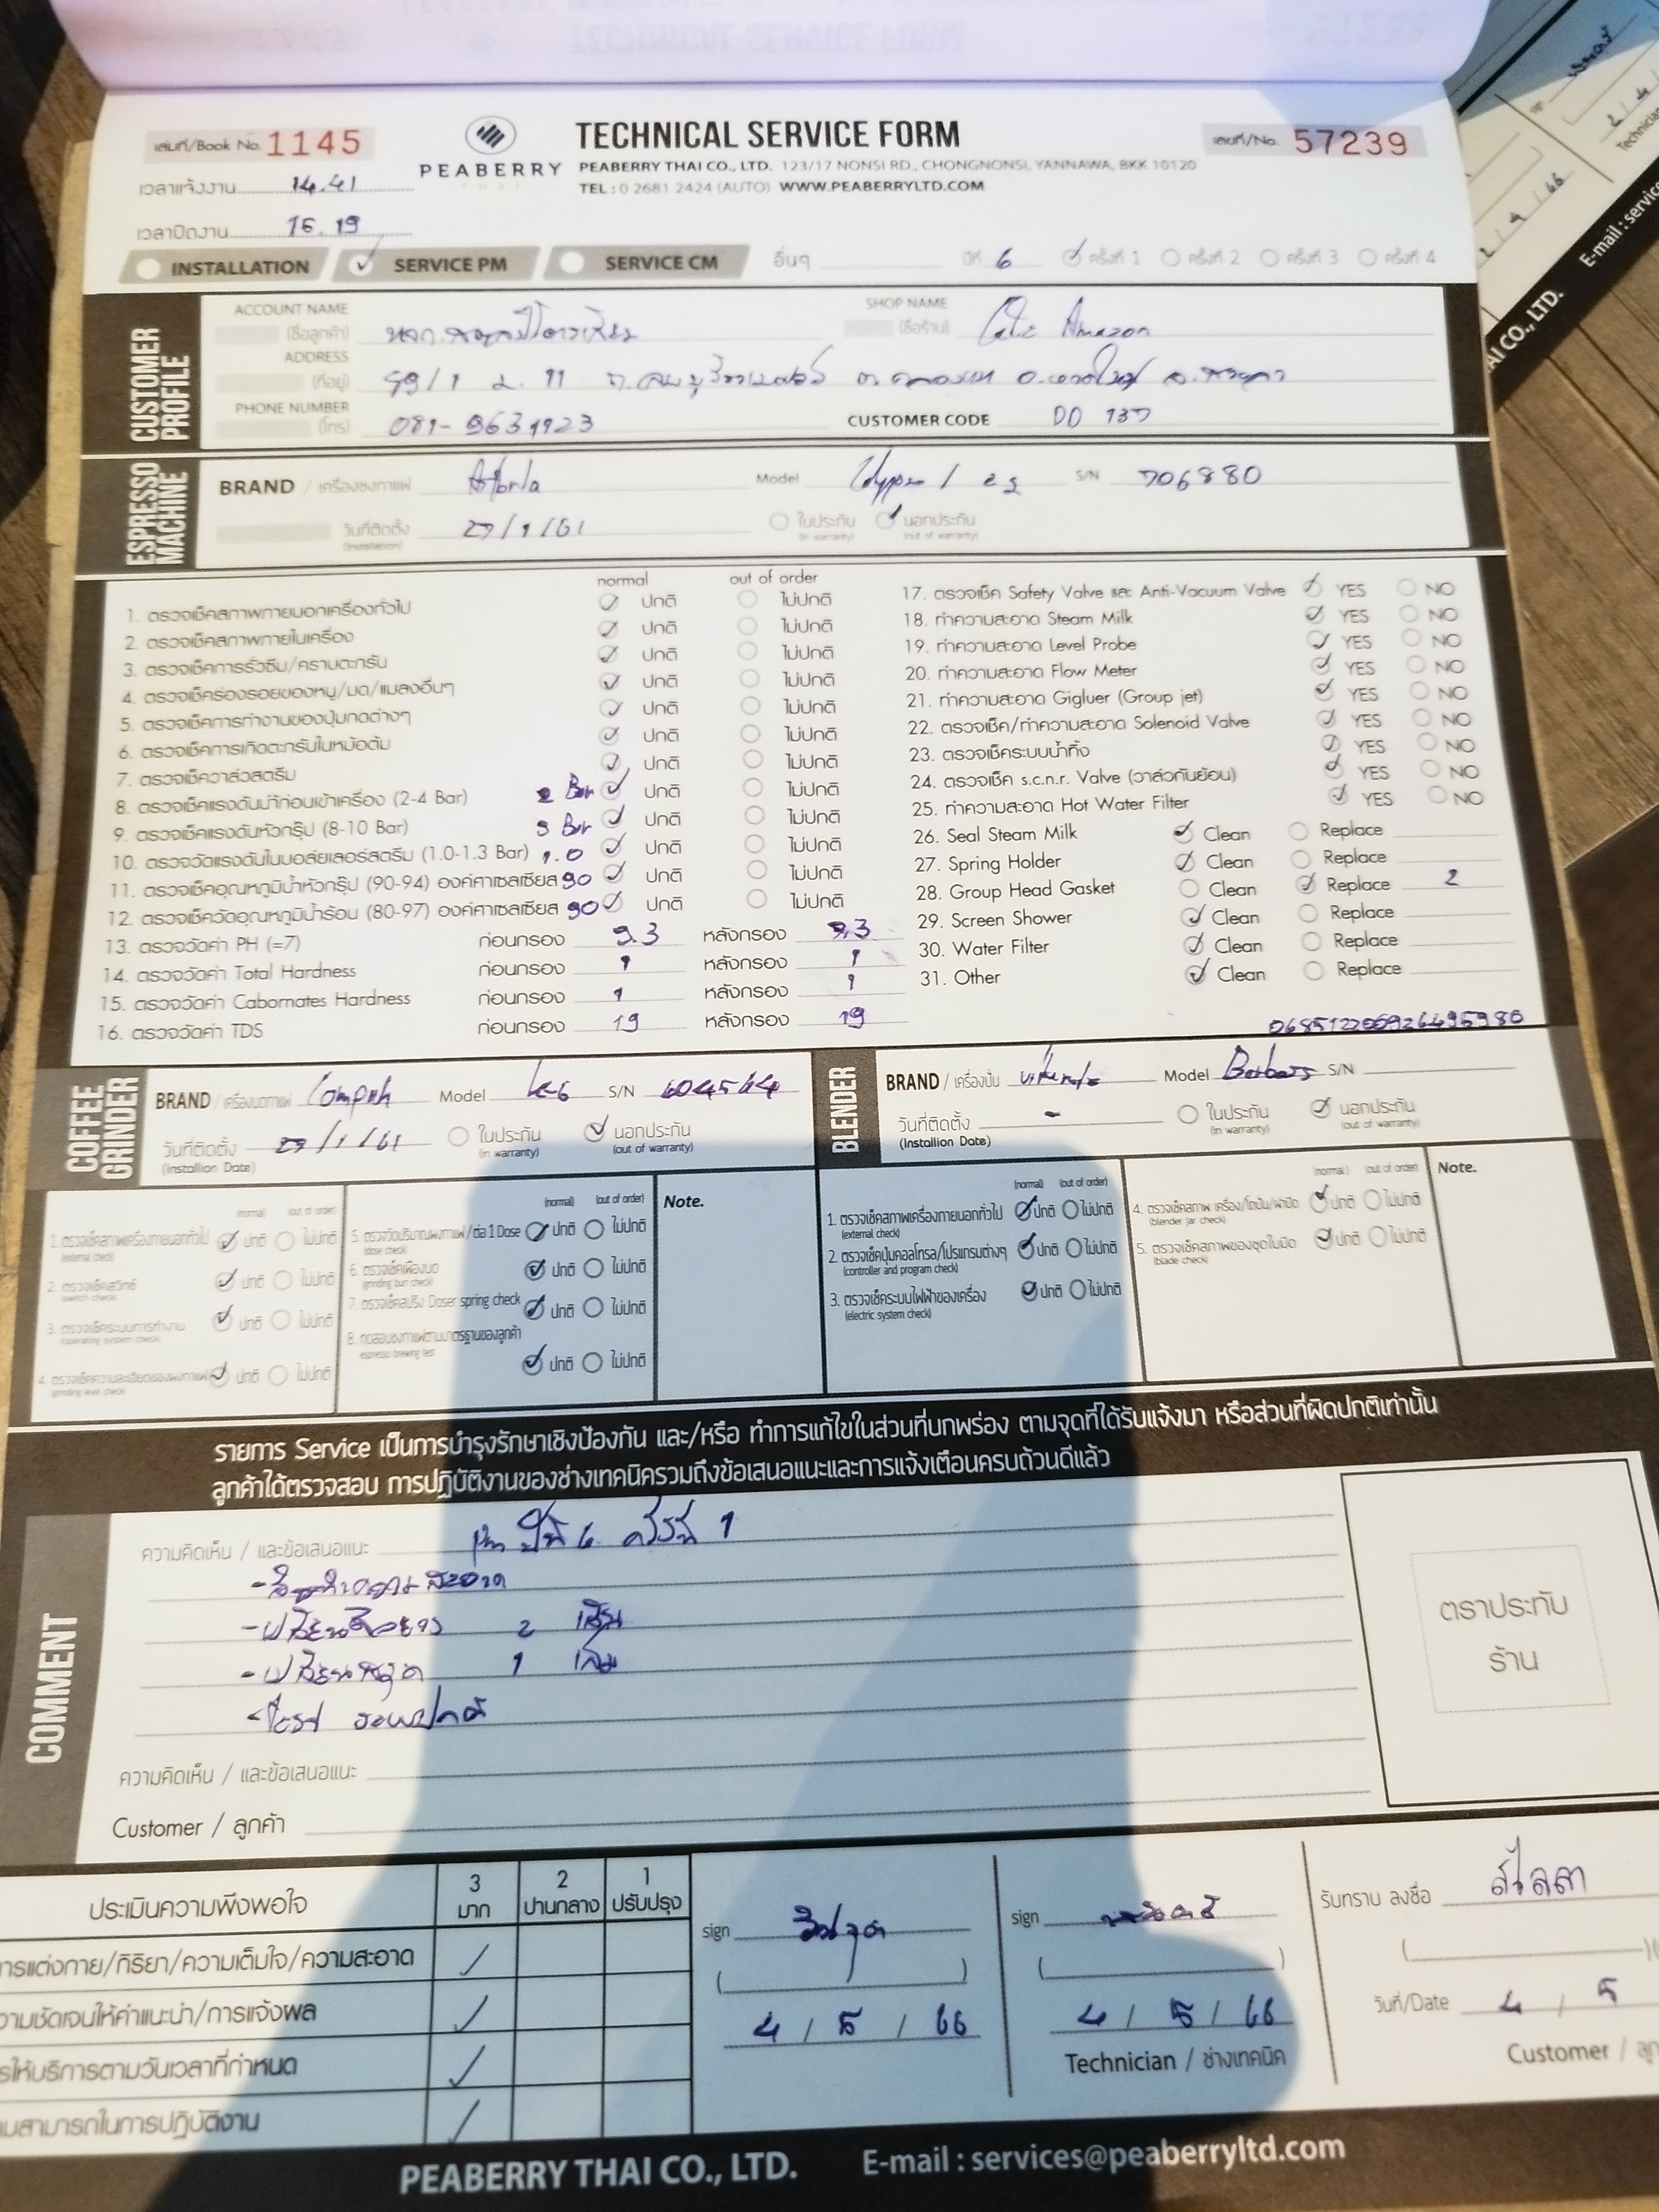 เล่มที่/Book No. 1145
PEABERRY
THAI
TECHNICAL SERVICE FORM
PEABERRY THAI CO., LTD. 123/17 NONSI RD., CHONGNONSI, YANNAWA, BKK 10120
TEL : 0 2681 2424 (AUTO) WWW.PEABERRYLTD.COM
เลขที่/No. 57239
เวลาแจ้งงาน 14.41
เวลาปิดงาน 16.19
INSTALLATION SERVICE PM SERVICE CM อื่นๆ ปีที่ 6 ครั้งที่ 1 ครั้งที่ 2 ครั้งที่ 3 ครั้งที่ 4
CUSTOMER PROFILE
ACCOUNT NAME (ชื่อลูกค้า) หจก. SHOP NAME (ชื่อร้าน) Cafe Amazon
ADDRESS (ที่อยู่) 99/1 ม. 11
PHONE NUMBER (โทร) 081-9631923 CUSTOMER CODE DD 137
ESPRESSO MACHINE
BRAND / เครื่องชงกาแฟ Astoria Model 2g S/N 706880
วันที่ติดตั้ง (Installation) 27/1/61 ในประกัน (in warranty) นอกประกัน (out of warranty)
normal out of order
1. ตรวจเช็คสภาพภายนอกเครื่องทั่วไป ปกติ ไม่ปกติ
2. ตรวจเช็คสภาพภายในเครื่อง ปกติ ไม่ปกติ
3. ตรวจเช็คการรั่วซึม/คราบตะกรัน ปกติ ไม่ปกติ
4. ตรวจเช็คร่องรอยของหนู/มด/แมลงอื่นๆ ปกติ ไม่ปกติ
5. ตรวจเช็คการทำงานของปุ่มกดต่างๆ ปกติ ไม่ปกติ
6. ตรวจเช็คการเกิดตะกรันในหม้อต้ม ปกติ ไม่ปกติ
7. ตรวจเช็ควาล์วสตรีม ปกติ ไม่ปกติ
8. ตรวจเช็คแรงดันน้ำก่อนเข้าเครื่อง (2-4 Bar) 2 Bar ปกติ ไม่ปกติ
9. ตรวจเช็คแรงดันหัวกรุ๊ป (8-10 Bar) 9 Bar ปกติ ไม่ปกติ
10. ตรวจวัดแรงดันในบอล์ยเลอร์สตรีม (1.0-1.3 Bar) 1.0 ปกติ ไม่ปกติ
11. ตรวจเช็คอุณหภูมิน้ำหัวกรุ๊ป (90-94) องค์ศาเซลเซียส 90 ปกติ ไม่ปกติ
12. ตรวจเช็ควัดอุณหภูมิน้ำร้อน (80-97) องค์ศาเซลเซียส 90 ปกติ ไม่ปกติ
13. ตรวจวัดค่า PH (=7) ก่อนกรอง 9.3 หลังกรอง 9.3
14. ตรวจวัดค่า Total Hardness ก่อนกรอง 1 หลังกรอง 1
15. ตรวจวัดค่า Cabornates Hardness ก่อนกรอง 1 หลังกรอง 1
16. ตรวจวัดค่า TDS ก่อนกรอง 19 หลังกรอง 19
17. ตรวจเช็ค Safety Valve และ Anti-Vacuum Valve YES NO
18. ทำความสะอาด Steam Milk YES NO
19. ทำความสะอาด Level Probe YES NO
20. ทำความสะอาด Flow Meter YES NO
21. ทำความสะอาด Gigluer (Group jet) YES NO
22. ตรวจเช็ค/ทำความสะอาด Solenoid Valve YES NO
23. ตรวจเช็คระบบน้ำทิ้ง YES NO
24. ตรวจเช็ค s.c.n.r. Valve (วาล์วกันย้อน) YES NO
25. ทำความสะอาด Hot Water Filter YES NO
26. Seal Steam Milk Clean Replace
27. Spring Holder Clean Replace
28. Group Head Gasket Clean Replace 2
29. Screen Shower Clean Replace
30. Water Filter Clean Replace
31. Other Clean Replace
COFFEE GRINDER
BRAND / เครื่องบดกาแฟ Compak Model K-6 S/N 6045644
วันที่ติดตั้ง (Installion Date) 27/1/61 ในประกัน (in warranty) นอกประกัน (out of warranty)
BLENDER
068512200926495980
BRAND / เครื่องปั่น Vitamix Model Barboss S/N
วันที่ติดตั้ง (Installion Date) - ในประกัน (in warranty) นอกประกัน (out of warranty)
(normal) (out of order)
1. ตรวจเช็คสภาพเครื่องภายนอกทั่วไป (external check) ปกติ ไม่ปกติ
2. ตรวจเช็คสวิทช์ (switch check) ปกติ ไม่ปกติ
3. ตรวจเช็คระบบการทำงาน (operating system check) ปกติ ไม่ปกติ
4. ตรวจเช็คความละเอียดของผงกาแฟ (grinding level check) ปกติ ไม่ปกติ
(normal) (out of order)
5. ตรวจวัดปริมาณผงกาแฟ/ต่อ 1 Dose (dose check) ปกติ ไม่ปกติ
6. ตรวจเช็คเฟืองบด (grinding burr check) ปกติ ไม่ปกติ
7. ตรวจเช็คสปริง Doser spring check ปกติ ไม่ปกติ
8. ทดสอบชงกาแฟตามมาตรฐานของลูกค้า espresso brewing test ปกติ ไม่ปกติ
Note.
(normal) (out of order)
1. ตรวจเช็คสภาพเครื่องภายนอกทั่วไป (external check) ปกติ ไม่ปกติ
2. ตรวจเช็คปุ่มคอลโทรล/โปรแกรมต่างๆ (controller and program check) ปกติ ไม่ปกติ
3. ตรวจเช็คระบบไฟฟ้าของเครื่อง (electric system check) ปกติ ไม่ปกติ
(normal) (out of order)
4. ตรวจเช็คสภาพ เครื่อง/โถปั่น/ฝาปิด (blender jar check) ปกติ ไม่ปกติ
5. ตรวจเช็คสภาพของชุดใบมีด (blade check) ปกติ ไม่ปกติ
Note.
รายการ Service เป็นการบำรุงรักษาเชิงป้องกัน และ/หรือ ทำการแก้ไขในส่วนที่บกพร่อง ตามจุดที่ได้รับแจ้งมา หรือส่วนที่ผิดปกติเท่านั้น
ลูกค้าได้ตรวจสอบ การปฏิบัติงานของช่างเทคนิครวมถึงข้อเสนอแนะและการแจ้งเตือนครบถ้วนดีแล้ว
COMMENT
ความคิดเห็น / และข้อเสนอแนะ Pm ปีที่ 6 ครั้งที่ 1
ทำความสะอาด
-เปลี่ยน 2 เส้น
-เปลี่ยน 1
ระบบปกติ
ตราประทับ
ร้าน
ความคิดเห็น / และข้อเสนอแนะ
Customer / ลูกค้า
ประเมินความพึงพอใจ 3 มาก 2 ปานกลาง 1 ปรับปรุง
การแต่งกาย/กิริยา/ความเต็มใจ/ความสะอาด
ความชัดเจนให้คำแนะนำ/การแจ้งผล
การให้บริการตามวันเวลาที่กำหนด
ความสามารถในการปฏิบัติงาน
sign
4 / 5 / 66
sign
4 / 5 / 66
Technician / ช่างเทคนิค
รับทราบ ลงชื่อ
วันที่/Date 4 / 5
Customer /
PEABERRY THAI CO., LTD. E-mail : services@peaberryltd.com